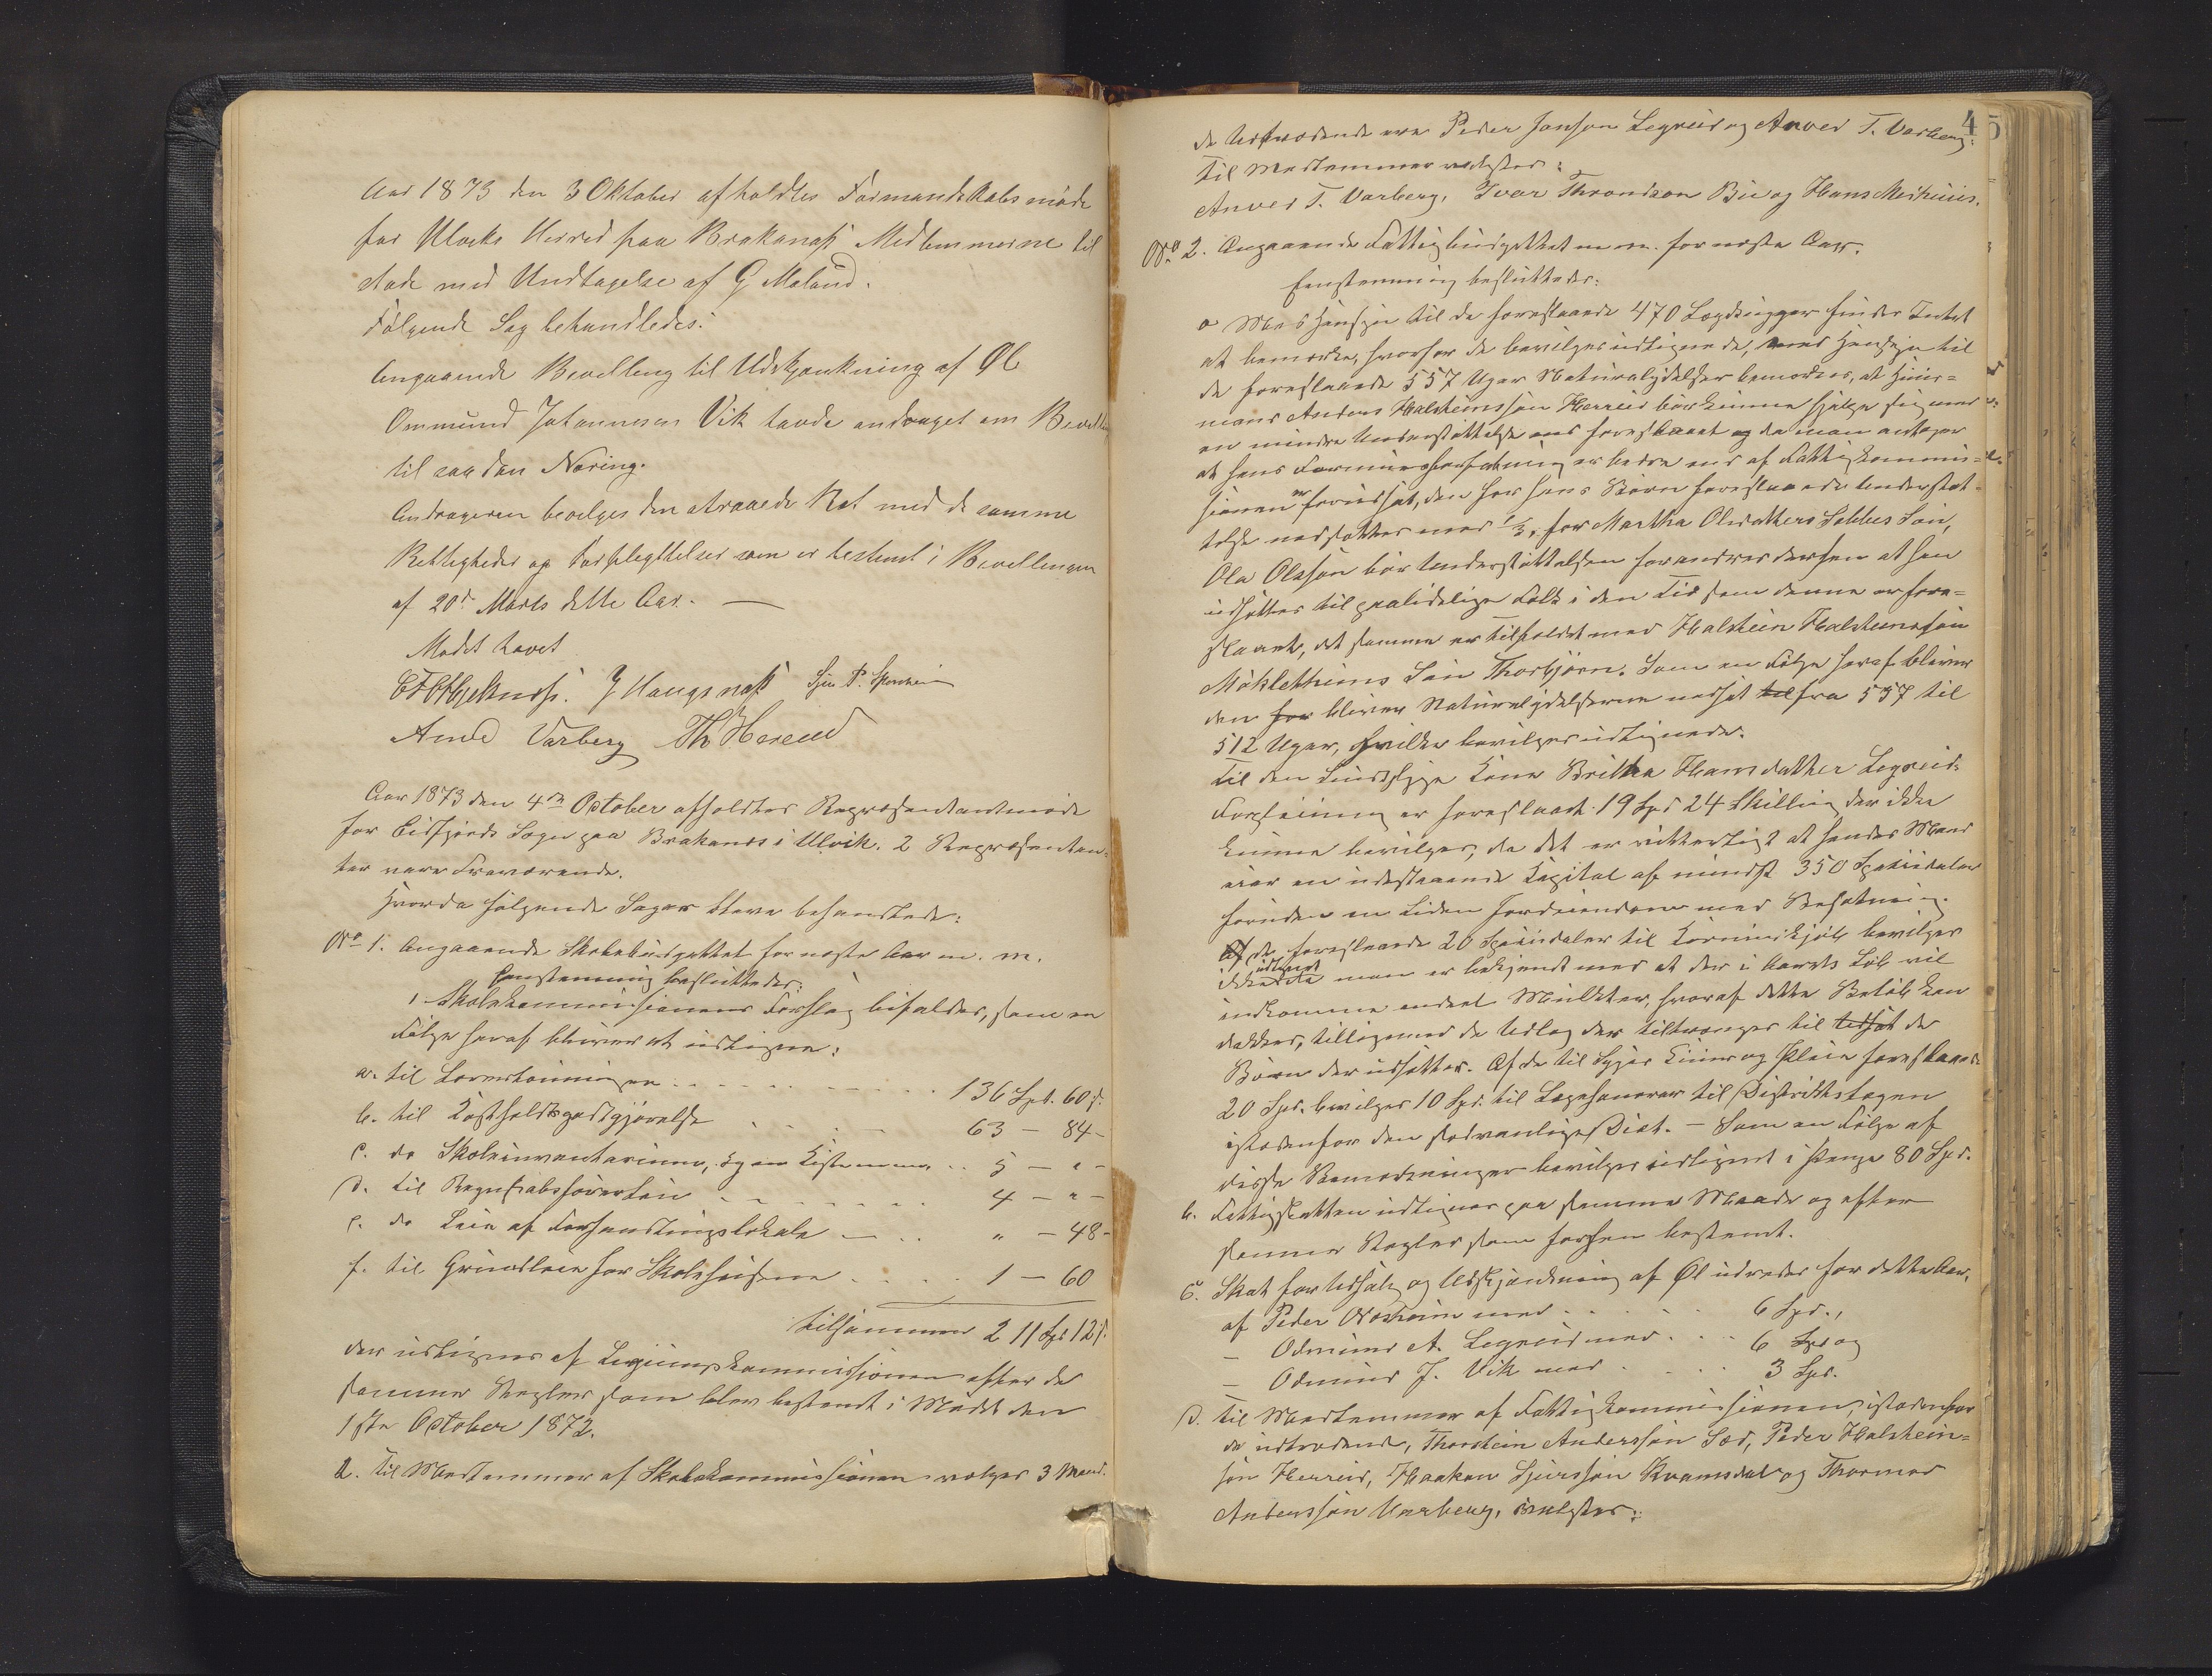 Aar 1873 den 3 Oktober afholdtes Formandskabsmøde
for Ulviks Herred paa Brakanæs Medlemmerne til
stede med Undtagelse af G Maland.
Følgende Sag behandledes:
Angaaende Bevilling til Udskjænkning af Øl
Ommund Johannesen Vik havde andraget om Bevilling
til saadan Næring.
Andrageren bevilges den attraaede Ret med de samme
Rettigheder og Forpligtelser som er bestemt i Bevillingen
af 20de Marts dette Aar. —
Mødet hævet
J Haugsnæs Sjur P. Sponheim
Arne Varberg Th Hereid
Aar 1873 den 4de October afholdtes Repræsentantmøde
for Eidfjords Sogn paa Brakanæs i Ulvik. 2 Repræsentan-
ter vare Fraværende.
Hvorda følgende Sager bleve behandlede:
No 1. Angaaende Skolebudgettet for næste Aar m. m.
Eenstemmig besluttedes:
1 Skolekommissionens Forslag bifaldes, som en
Følge heraf bliver at udligne:
a. til Lærerlønninger . . . . 136 Spd. 60 s.
b. til Kostholdsgodtgjørelse . . . 63 — 84 -
c. do Skoleinventarium, Kister m. m. . . 5 — " -
d. til Regnskabsførerløn . . . . 4 — " -
e. do Leie af Forhandlingslokale — . . " — 48 -
f. til Grundleie for Skolehusene . . . . 1 — 60
tilsammen 211 Spd 12 s.
der udlignes af Ligningskommissionen efter de
samme Regler som blev bestemt i Mødet den
1ste October 1872.
2. Til Medlemmer af Skolekommissionen vælges 3 Mænd.
45
de Udtrædende ere Peder Janson Legreid og Anved T. Varberg.
Til Medlemmer valgtes:
Anved T. Varberg, Ivar Throndsen Bu og Hans Meihuus.
No 2. Angaaende Fattigbudgettet m. m. for næste Aar.
Eenstemmig besluttedes:
a Med Hensyn til de foreslaaede 470 Lægdsuger findes Intet
at bemærke, hvorfor de bevilges udlignede, med Hensyn til
de foreslaaede 557 Uger Naturalydelser bemærkes, at Huus-
mand Anders Halsteinssøn Herreid bør kunne hjælpe sig med
en mindre Understøttelse end foreslaaet og da man antager
at hans Formuesforfatning er bedre end af Fattigkommis-
sionen er forudsat, den for hans Børn foreslaaede Understøt-
telse nedsættes med 1/3, for Martha Olsdatters Søn,
Ola Olsøn bør Understøttelsen forandres derhen at han
udsættes til paalidelige Folk i den Tid som denne er fore-
slaaet, det samme er tilfældet med Halstein Halsteinssøn
Mæklethuns Søn Thorbjørn. Som en Følge heraf bliver
den for bliver Naturalydelserne nedsat til fra 557 til
512 Uger, hvilke bevilges udlignede.
Til den Sindssyge Kone Britha Hansdatter Legreids
Forpleining er foreslaaet 19 Spd 24 Skilling der ikke
kunne bevilges, da det er vitterligt at hendes Mand
eier en udestaaende Kapital af mindst 350 Speciedaler
foruden en liden Jordeiendom med Besætning.
Af de foreslaaede 20 Speciedaler til Kornindkjøb bevilges
ikke udlignet da man er bekjendt med at der i Aarets Løb vil
indkomme endeel Mulkter, hvoraf dette Beløb kan
dækkes, tilligemed de Udlæg der tiltrænges til Udsat de
Børn der udsættes. Af de til Syges Kuur og Pleie foreslaaede
20 Spd. bevilges 10 Spd. til Lægehonorar til Distriktslægen
istedenfor den sædvanlige Diet. — Som en Følge af
disse Bemærkninger bevilges udlignet i Penge 80 Spd.
b. Fattigskatten udlignes paa samme Maade og efter
samme Regler som forhen bestemt.
c. Skat for Udsalg og Udskjænkning af Øl udredes for dette Aar,
af Peder Næsheim med . . . . . 6 Spd.,
— Odmund A. Legreid med . . . 6 Spd og
— Odmund J. Vik med . . . 3 Spd.
d. Til Medlemmer af Fattigkommissionen, istedenfor
de udtrædende, Thorstein Anderssøn Sæd, Peder Halstein-
søn Herreid, Haakon Sjurssøn Kvamsdal og Thormod
Anderssøn Varberg, valgtes: